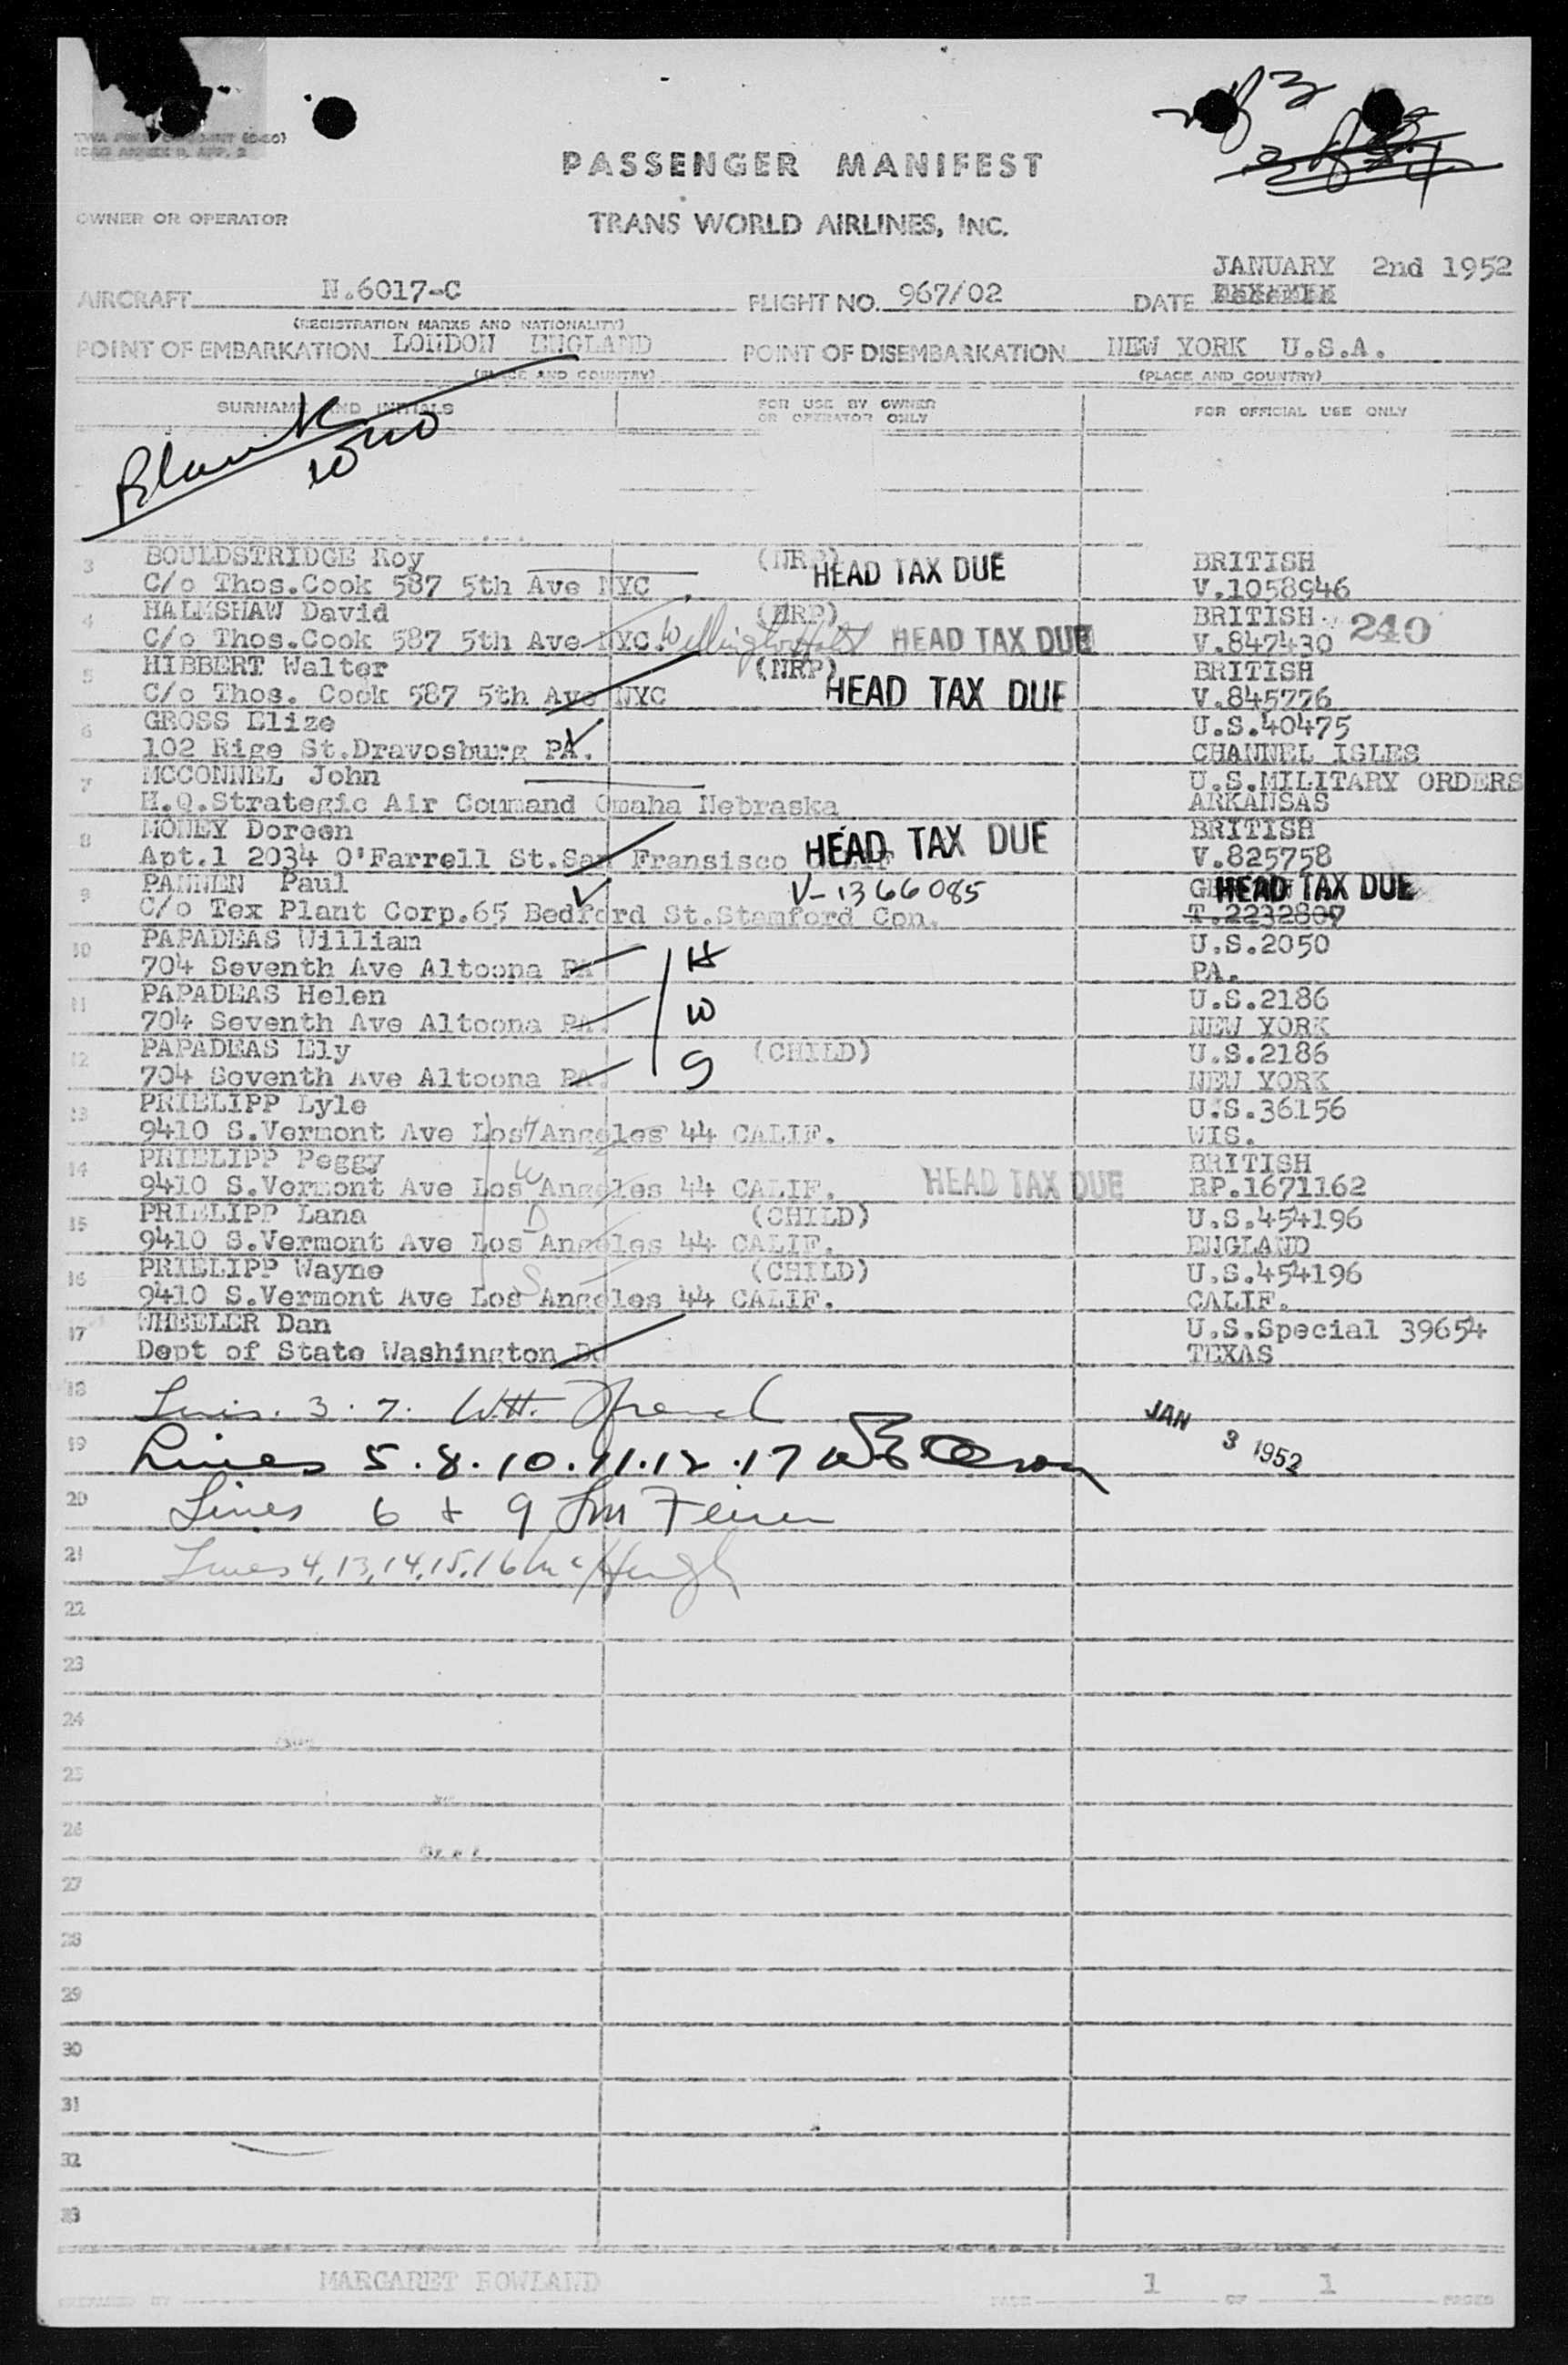 PASSENGER MANIFEST
OWNER OR OPERATOR
TRANS WORLD AIRLINES, INC.
JANUARY 2nd 1952
AIRCRAFT N.6017-C FLIGHT NO. 967/02 DATE
(REGISTRATION MARKS AND NATIONALITY)
POINT OF EMBARKATION LONDON ENGLAND POINT OF DISEMBARKATION NEW YORK U.S.A.
(PLACE AND COUNTRY) (PLACE AND COUNTRY)
SURNAME AND INITIALS FOR USE BY OWNER OR OPERATOR ONLY FOR OFFICIAL USE ONLY
Blank
3 BOULDSTRIDGE Roy (NRP) HEAD TAX DUE BRITISH
C/o Thos.Cook 587 5th Ave NYC. V.1058946
4 HALMSHAW David (NRP) BRITISH 240
C/o Thos.Cook 587 5th Ave NYC. HEAD TAX DUE V.847430
5 HIBBERT Walter (NRP) BRITISH
C/o Thos. Cook 587 5th Ave NYC HEAD TAX DUE V.845776
6 GROSS Elize U.S.40475
102 Rige St.Dravosburg PA. CHANNEL ISLES
7 MCCONNEL John U.S.MILITARY ORDERS
H.Q.Strategic Air Command Omaha Nebraska ARKANSAS
8 MONEY Doreen BRITISH
Apt.1 2034 O'Farrell St.San Fransisco HEAD TAX DUE V.825758
9 PANNEN Paul V-1366085 HEAD TAX DUE
C/o Tex Plant Corp.65 Bedford St.Stamford Con. T.2232807
10 PAPADEAS William H U.S.2050
704 Seventh Ave Altoona PA PA.
11 PAPADEAS Helen W U.S.2186
704 Seventh Ave Altoona PA. NEW YORK
12 PAPADEAS Ely (CHILD) S U.S.2186
704 Seventh Ave Altoona PA. NEW YORK
13 PRIELIPP Lyle U.S.36156
9410 S.Vermont Ave Los Angeles 44 CALIF. WIS.
14 PRIELIPP Peggy W BRITISH
9410 S.Vermont Ave Los Angeles 44 CALIF. HEAD TAX DUE RP.1671162
15 PRIELIPP Lana D (CHILD) U.S.454196
9410 S.Vermont Ave Los Angeles 44 CALIF. ENGLAND
16 PRIELIPP Wayne S (CHILD) U.S.454196
9410 S.Vermont Ave Los Angeles 44 CALIF. CALIF.
17 WHEELER Dan U.S.Special 39654
Dept of State Washington DC TEXAS
18 3.7. W.H. French JAN 3 1952
19 Lines 5.8.10.11.12.17
20 Lines 6 + 9
21 Lines 4,13,14,15,16 McHugh
22
23
24
25
26
27
28
29
30
31
32
33
MARGARET ROWLAND 1 OF 1 PAGES
PREPARED BY PAGE